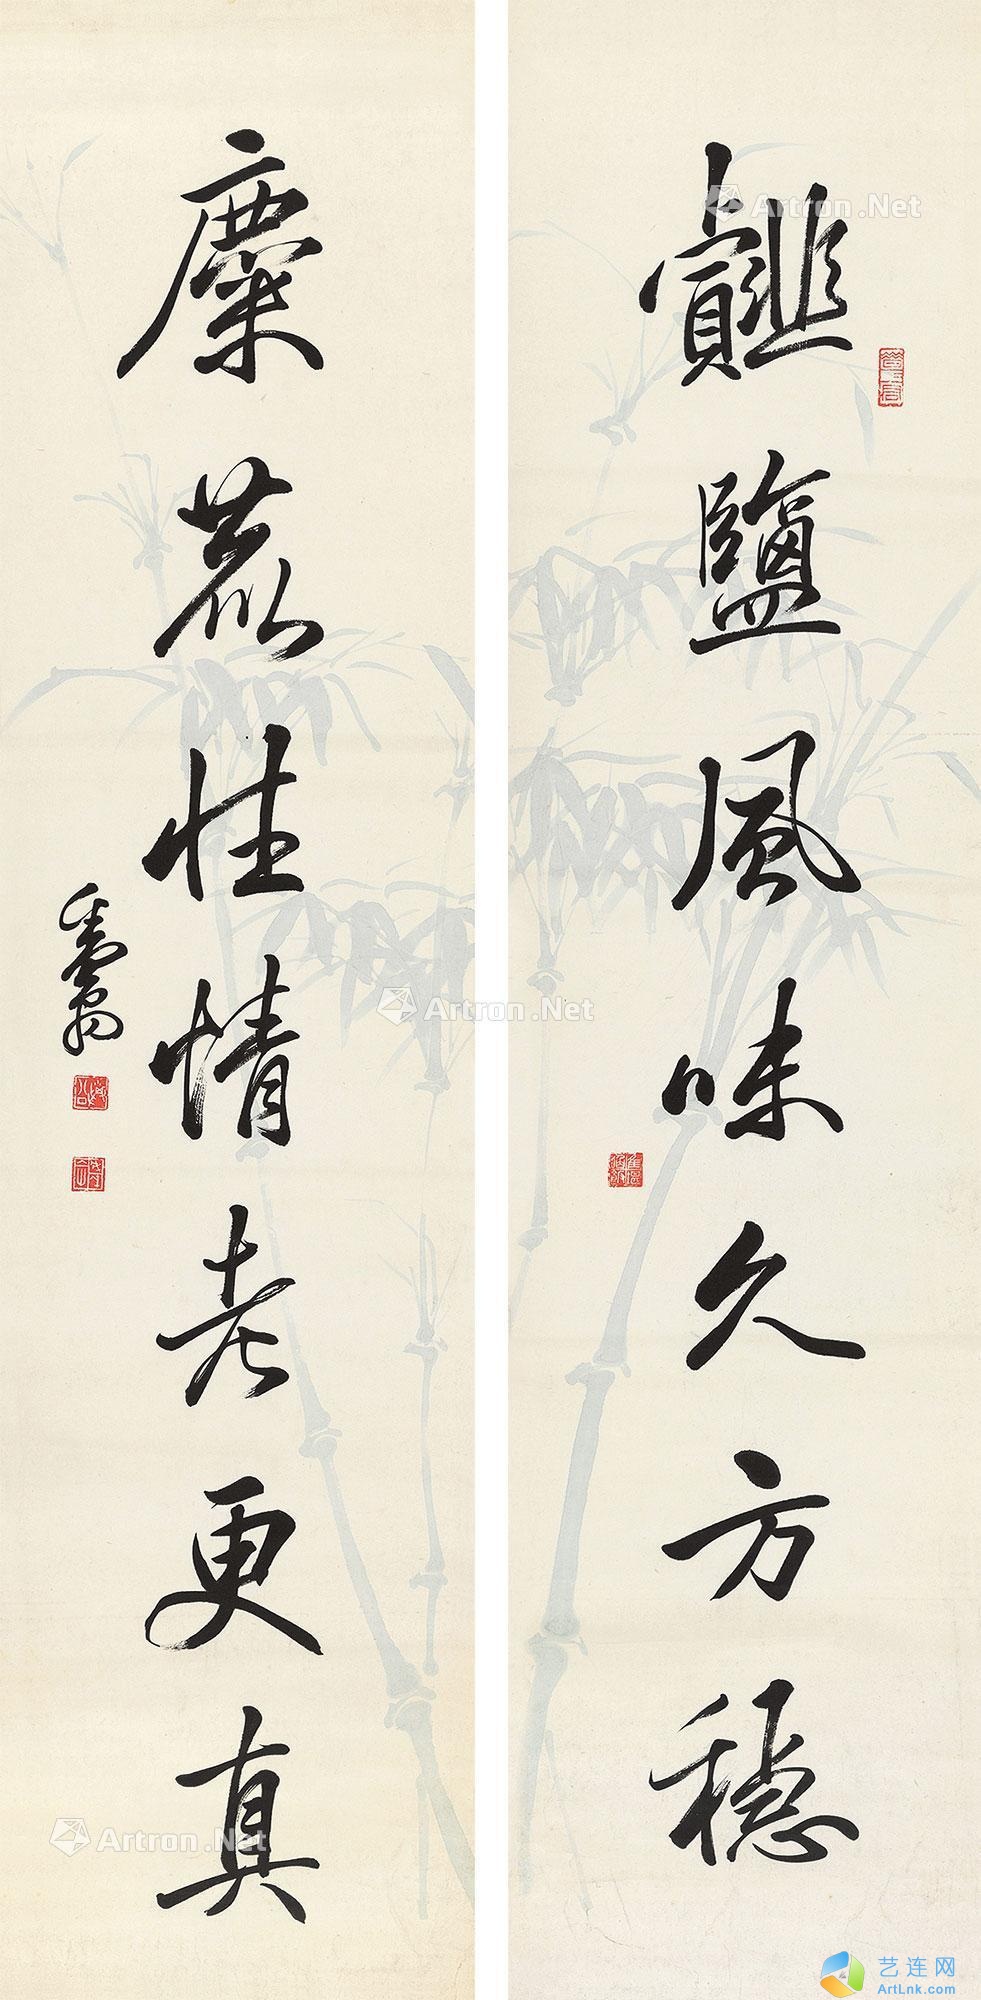 齏鹽風味久方穩
麋鹿性情老更真
Artron.Net
Artron.Net
Artron.Net
艺连网
ArtLnk.com